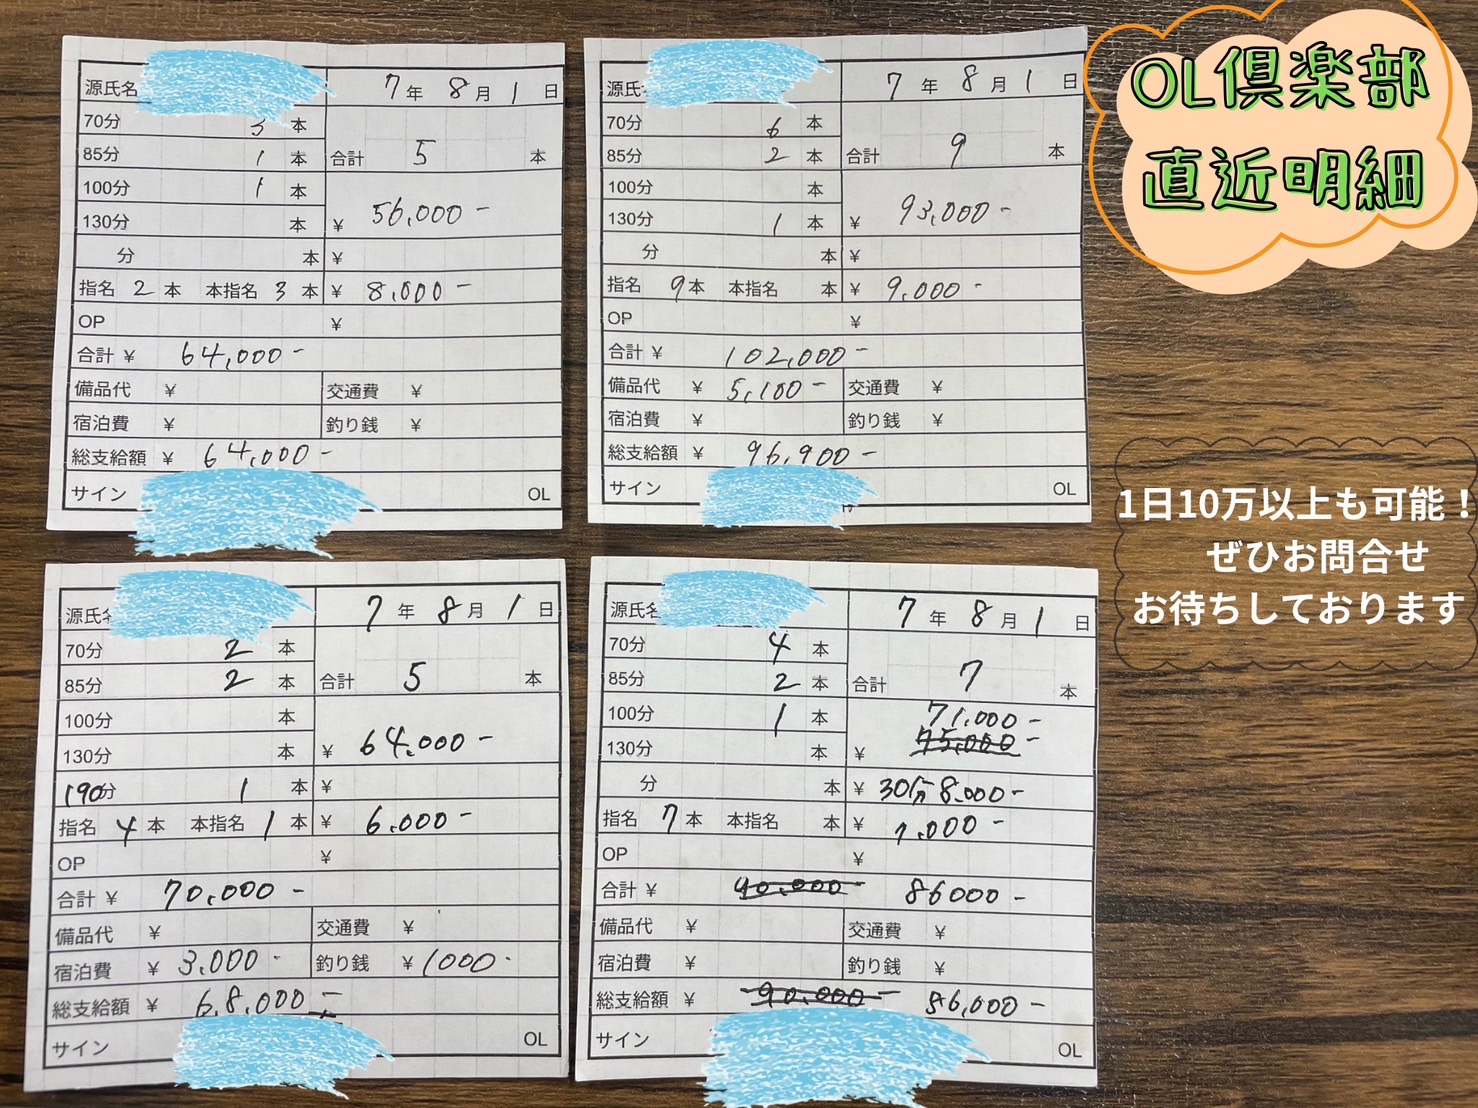 源氏名
7年 8月 1日
70分 3本
85分 1本
合計 5 本
100分 1本
130分 本
¥ 56,000-
分 本 ¥
指名 2本 本指名 3本 ¥ 8,000-
OP ¥
合計 ¥ 64,000-
備品代 ¥ 交通費 ¥
宿泊費 ¥ 釣り銭 ¥
総支給額 ¥ 64,000-
サイン OL
源氏
7年 8月 1日
70分 6本
85分 2本
合計 9 本
100分 本
130分 1本
¥ 93,000-
分 本 ¥
指名 9本 本指名 本 ¥ 9,000-
OP ¥
合計 ¥ 102,000-
備品代 ¥ 5,100- 交通費 ¥
宿泊費 ¥ 釣り銭 ¥
総支給額 ¥ 96,900-
サイン OL
OL倶楽部
直近明細
1日10万以上も可能!
ぜひお問合せ
お待ちしております
源氏
7年 8月 1日
70分 2本
85分 2本
合計 5 本
100分 本
130分 本
¥ 64,000-
190分 1本 ¥
指名 4本 本指名 1本 ¥ 6,000-
OP ¥
合計 ¥ 70,000-
備品代 ¥ 交通費 ¥
宿泊費 ¥ 3,000- 釣り銭 ¥ 1000-
総支給額 ¥ 68,000-
サイン OL
源氏名
7年 8月 1日
70分 4本
85分 2本
合計 7 本
100分 1本
71,000-
130分 本
¥ 75,000-
分 本 ¥ 30分 8,000-
指名 7本 本指名 本 ¥ 7,000-
OP ¥
合計 ¥ 90,000- 86000-
備品代 ¥ 交通費 ¥
宿泊費 ¥ 釣り銭 ¥
総支給額 ¥ 90,000- 86,000-
サイン OL